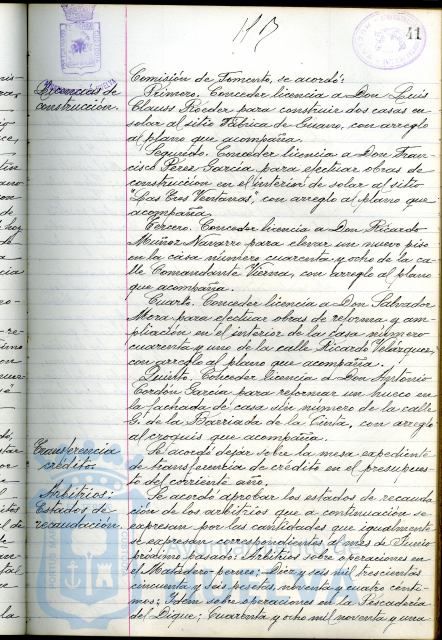 41
Comisión de Fomento, se acordó:
Licencias de
construcción.
Primero. Conceder licencia a Don Luis
Clauss Röeder para construir dos casas en
solar al sitio Fábrica de Guano, con arreglo
al plano que acompaña.
Segundo. Conceder licencia a Don Fran-
cisco Pérez García para efectuar obras de
construcción en el interior de solar al sitio
"Las Tres Ventanas", con arreglo al plano que
acompaña.
Tercero. Conceder licencia a Don Ricardo
Muñoz Navarro para elevar un nuevo piso
en la casa número cuarenta y ocho de la ca-
lle Comandante Vierna, con arreglo al plano
que acompaña.
Cuarto. Conceder licencia a Don Salvador
Mora para efectuar obras de reforma y am-
pliación en el interior de la casa número
cuarenta y uno de la calle Ricardo Velázquez,
con arreglo al plano que acompaña.
Quinto. Conceder licencia a Don Antonio
Cordón García para reformar un hueco en
la fachada de casa sin número de la calle
G. de la Barriada de la Cinta, con arreglo
al croquis que acompaña.
Transferencia
crédito.
Se acordó dejar sobre la mesa expediente
de transferencia de crédito en el presupues-
to del corriente año.
Arbitrios:
Estados de
recaudación.
Se acordó aprobar los estados de recauda-
ción de los arbitrios que a continuación se
expresan por las cantidades que igualmente
se expresan correspondientes al mes de Junio
próximo pasado: Arbitrios sobre operaciones en
el Matadero perneo: Diez y seis mil trescientas
cincuenta y seis pesetas noventa y cuatro cénti-
mos; Idem sobre operaciones en la Pescadería
del Dique: Cuarenta y ocho mil noventa y una